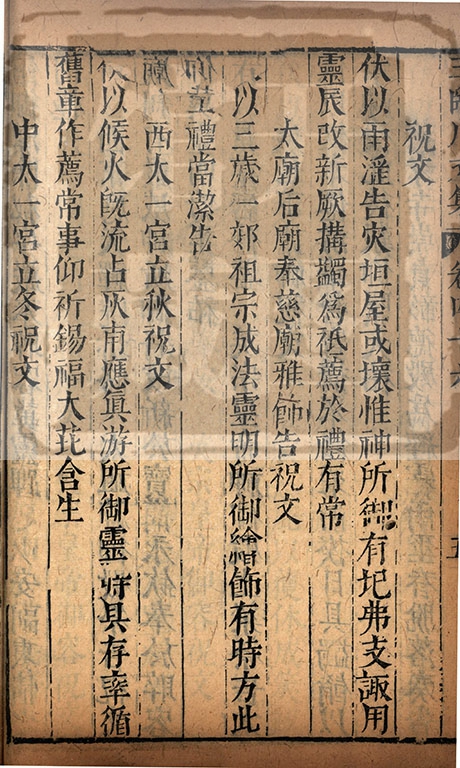 王臨川文集 卷四十六 五
祝文
伏以雨淫告灾垣屋或壞惟神所御有圮弗支諏用
靈辰改新厥搆蠲爲祇薦於禮有常
太廟后廟奉慈廟雅飾告祝文
以三歲一郊祖宗成法靈明所御繪飾有時方此
仰 禮當潔告
西太一宮立秋祝文
伏以候火旣流占灰南應眞游所御靈 具存率循
舊章作薦常事仰祈錫福大芘含生
中太一宮立冬祝文